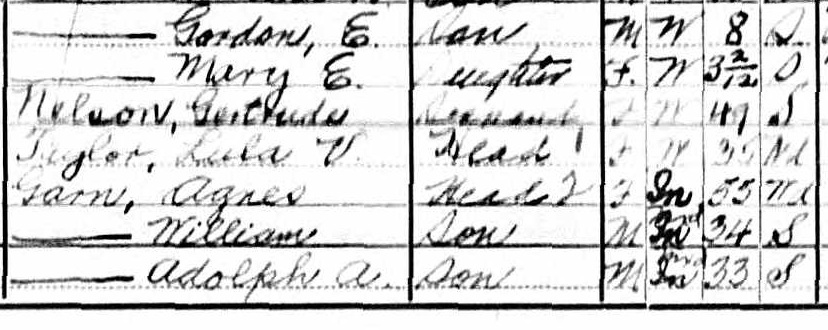 Gordon, E. Son M W 8 S
Mary E. Daughter F. W 3 2/12 S
Nelson, Gertrude Servant F W 49 S
Taylor, Lula V. Head 1 F W 35 Wd
Garn, Agnes Head 2 F In 55 Wd
William Son M In 34 S
Adolph A. Son M In 33 S